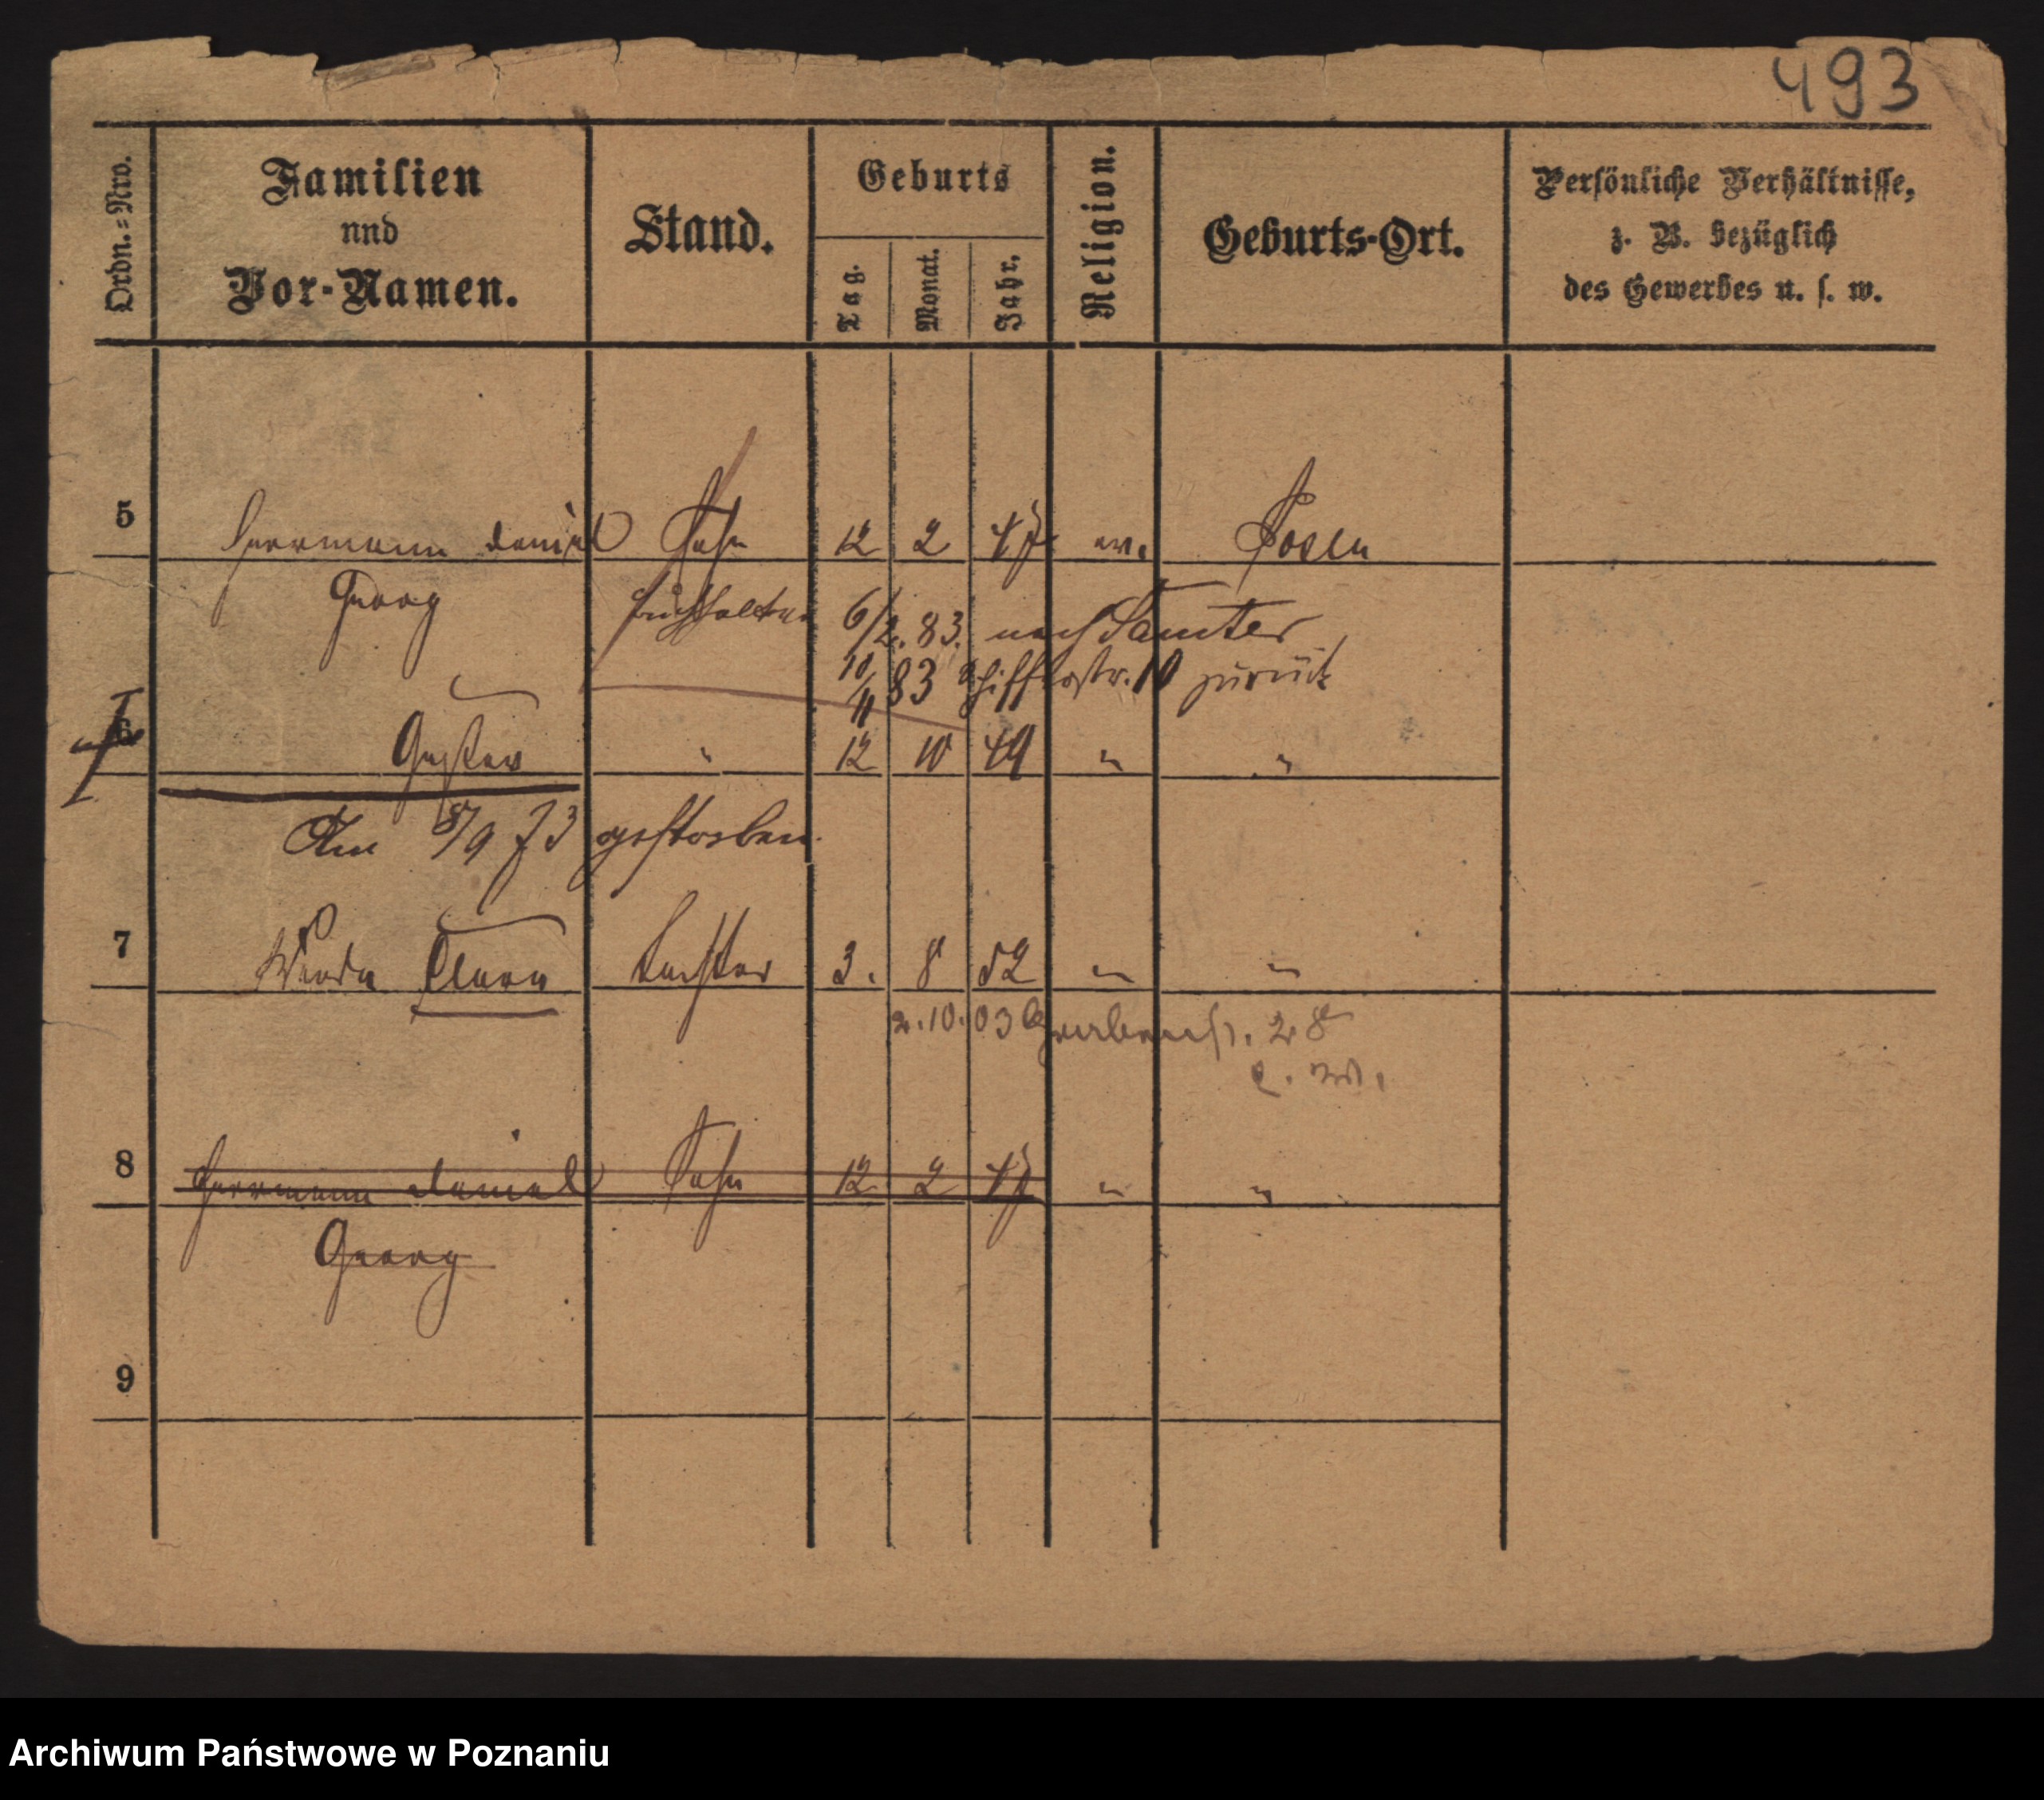 493
Ordn.=Nro.
Familien
und
Vor-Namen.
Stand.
Geburts
Tag.
Monat.
Jahr.
Religion.
Geburts-Ort.
Persönliche Verhältnisse,
z. B. bezüglich
des Gewerbes u. s. w.
5 Herrmann Daniel Sohn 12 2 47 ev. Posen
Georg Buchhalter 6/2. 83. nach Samter
10/11 83 Schifferstr. 10 zurück
6 Gustav " 12 10 49 " "
Am 8/9 73 gestorben.
7 Clara Tochter 3. 8 52 " "
2. 10. 03 28
8 Herrmann Daniel Sohn 12 2 47 " "
Georg
9
Archiwum Państwowe w Poznaniu